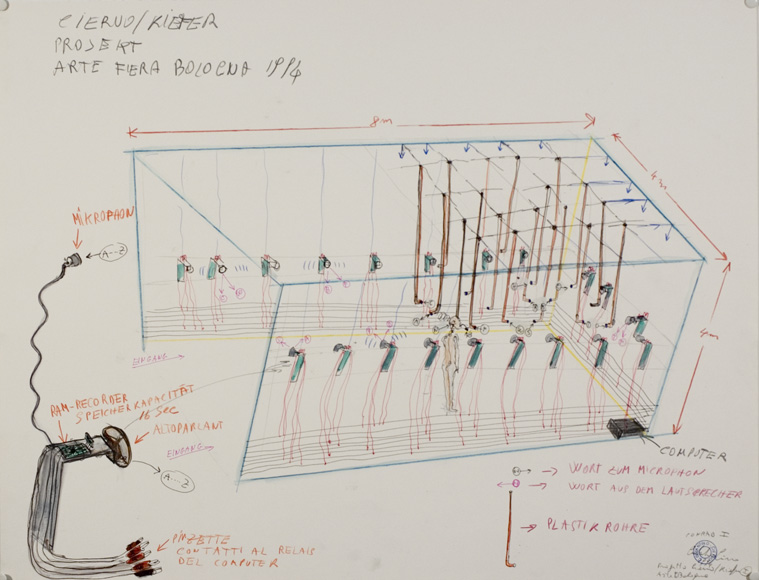 CIERVO/KIEFER
PROJEKT
ARTE FIERA BOLOGNA 1994
8m
4m
MIKROPHON
A...Z
4m
EINGANG
RAM-RECORDER
SPEICHERKAPACITÄT
16 SEC
ALTOPARLANT
EINGANG
A...Z
COMPUTER
WORT ZUM MICROPHON
WORT AUS DEM LAUTSPRECHER
PLASTIK ROHRE
PIAZETTE
CONTATTI AL RELAIS
DEL COMPUTER